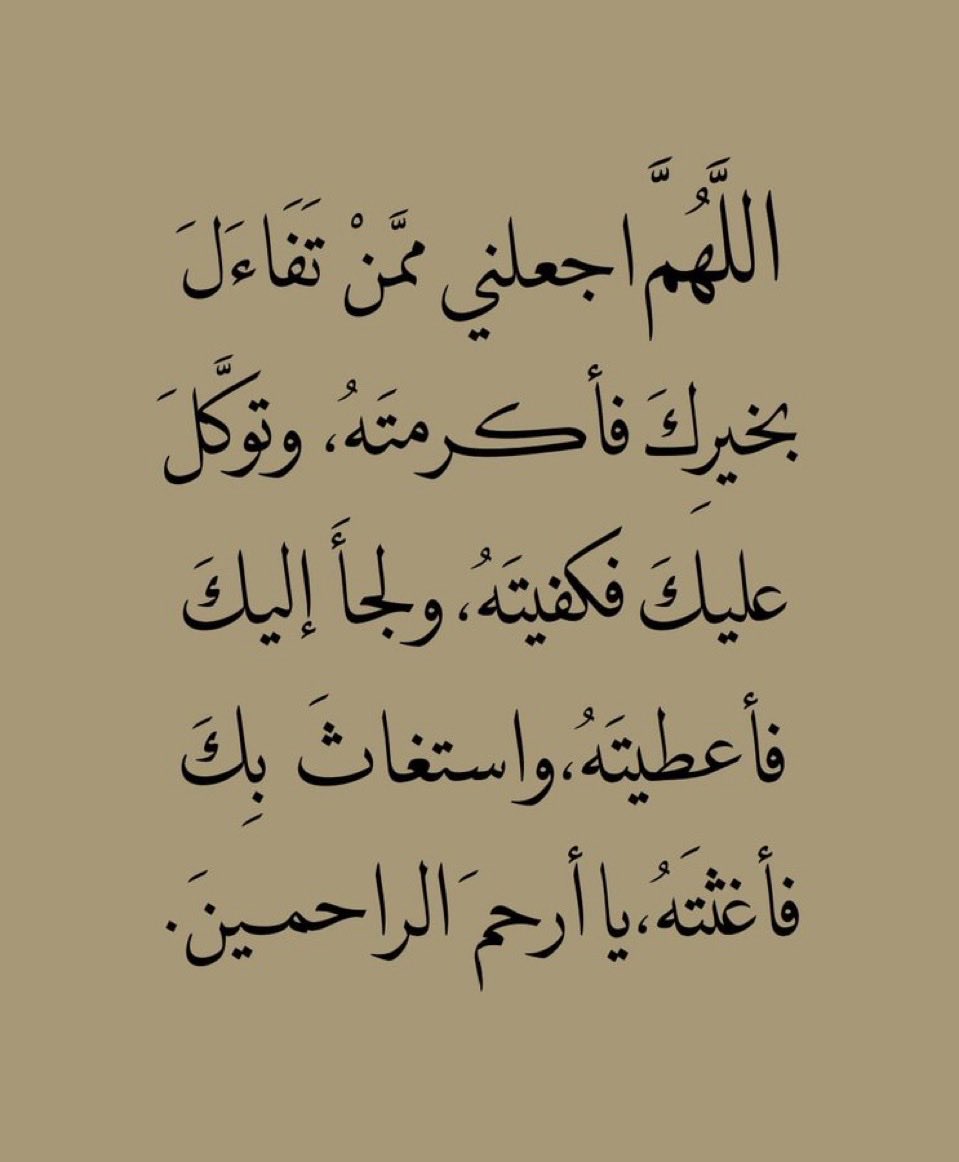 اللَّهُمَّ اجعلني ممَّنْ تَفَاءَلَ
بخيرِكَ فأكرمتَهُ، وتوكَّلَ
عليكَ فكفيتَهُ، ولجأَ إليكَ
فأعطيتَهُ،واستغاثَ بِكَ
فأغثتَهُ،يا أرحمَ الراحمينَ.